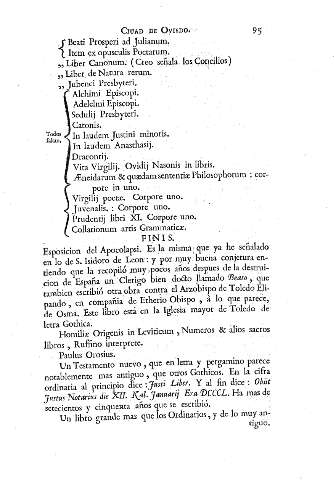 Ciudad de Oviedo. 95
Beati Prosperi ad Julianum.
Item ex opusculis Poetarum.
„ Liber Canonum. (Creo señala los Concilios)
„ Liber de Natura rerum.
„ Jubenci Presbyteri.
Alchimi Episcopi.
Adelelmi Episcopi.
Sedulij Presbyteri.
Catonis.
Todos faltan.
In laudem Justini minoris.
In laudem Anasthasij.
Dracontij.
Vita Virgilij. Ovidij Nasonis in libris.
Æneidarum & quædam sententiæ Philosophorum : cor-
pore in uno.
Virgilij poetæ. Corpore uno.
Juvenalis. : Corpore uno.
Prudentij libri XI. Corpore uno.
Collationum artis Grammaticæ.
FINIS.
Esposicion del Apocalapsi. Es la misma que ya he señalado
en lo de S. Isidoro de Leon : y por muy buena conjetura en-
tiendo que la recopiló muy pocos años despues de la destrui-
cion de España un Clerigo bien docto llamado Beato, que
tambien escribió otra obra contra el Arzobispo de Toledo Eli-
pando, en compañia de Etherio Obispo, á lo que parece,
de Osma. Este libro está en la Iglesia mayor de Toledo de
letra Gothica.
Homiliæ Origenis in Leviticum, Numeros & alios sacros
libros, Ruffino interprete.
Paulus Orosius.
Un Testamento nuevo, que en letra y pergamino parece
notablemente mas antiguo, que otros Gothicos. En la cifra
ordinaria al principio dice : Justi Liber. Y al fin dice : Obiit
Justus Notarius die XII. Kal. Januarij Era DCCCL. Ha mas de
setecientos y cinquenta años que se escribió.
Un libro grande mas que los Ordinarios, y de lo muy an-
tiguo.